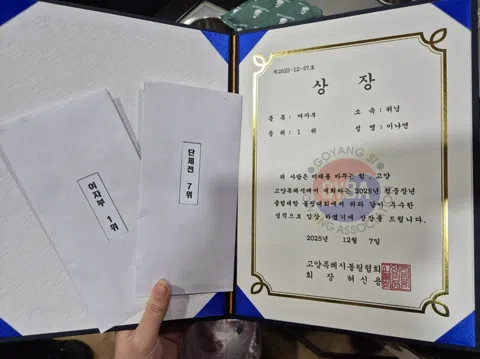 여자부 1위
단체전 7위
제2025-12-07호
상 장
종 목 : 여자부
소 속 : 위닝
등 위 : 1 위
성 명 : 이나연
위 사람은 미래를 바꾸는 힘, 고양
고양특례시에서 개최하는 2025년 전국장년
볼링대회에서 위와 같이 우수한
성적으로 입상 하였기에 상장을 드립니다.
2025년 12월 7일
고양특례시볼링협회
회 장 허신용
GOYANG SI
BOWLING ASSOCIATION